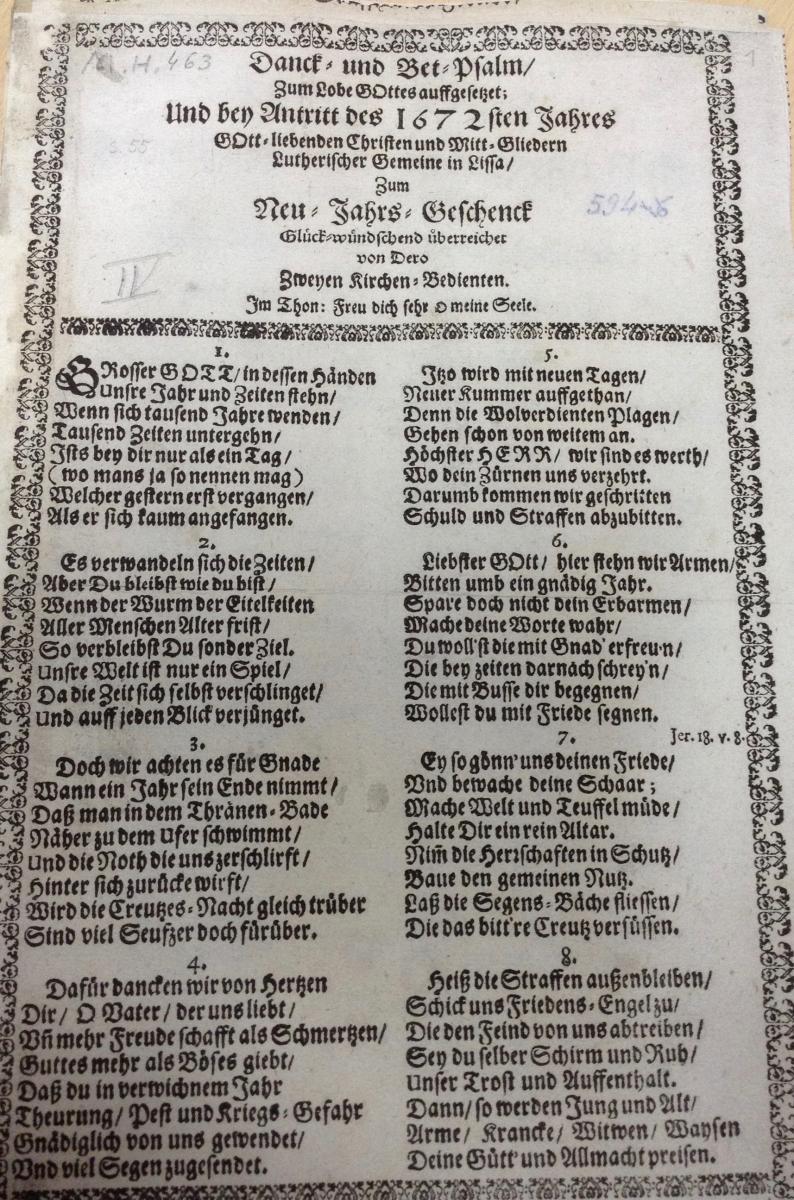 H. 463
1
Danck- und Bet-Psalm/
Zum Lobe GOttes auffgesetzet;
Und bey Antritt des 1672sten Jahres
GOtt-liebenden Christen und Mitt-Gliedern
Lutherischer Gemeine in Lissa/
Zum
Neu-Jahrs-Geschenck
Glück-wündschend überreichet
von Dero
Zweyen Kirchen-Bedienten.
Im Thon: Freu dich sehr O meine Seele.
IV
1.
GRosser GOTT/ in dessen Händen
Unsre Jahr und Zeiten stehn/
Wenn sich tausend Jahre wenden/
Tausend Zeiten untergehn/
Ists bey dir nur als ein Tag/
(wo mans ja so nennen mag)
Welcher gestern erst vergangen/
Als er sich kaum angefangen.
2.
Es verwandeln sich die Zeiten/
Aber Du bleibst wie du bist/
Wenn der Wurm der Eitelkeiten
Aller Menschen Alter frist/
So verbleibst Du sonder Ziel.
Unsre Welt ist nur ein Spiel/
Da die Zeit sich selbst verschlinget/
Und auff jeden Blick verjünget.
3.
Doch wir achten es für Gnade
Wann ein Jahr sein Ende nimmt/
Daß man in dem Thränen-Bade
Näher zu dem Ufer schwimmt/
Und die Noth die uns zerschlirft/
Hinter sich zurücke wirft/
Wird die Creutzes-Nacht gleich trüber
Sind viel Seufzer doch fürüber.
4.
Dafür dancken wir von Hertzen
Dir/ O Vater/ der uns liebt/
Vñ mehr Freude schafft als Schmertzen/
Guttes mehr als Böses giebt/
Daß du in verwichnem Jahr
Theurung/ Pest und Kriegs-Gefahr
Gnädiglich von uns gewendet/
Vnd viel Segen zugesendet.
5.
Itzo wird mit neuen Tagen/
Neuer Kummer auffgethan/
Denn die Wolverdienten Plagen/
Gehen schon von weitem an.
Höchster HERR/ wir sind es werth/
Wo dein Zürnen uns verzehrt.
Darumb kommen wir geschritten
Schuld und Straffen abzubitten.
6.
Liebster GOtt/ hier stehn wir Armen/
Bitten umb ein gnädig Jahr.
Spare doch nicht dein Erbarmen/
Mache deine Worte wahr/
Du woll'st die mit Gnad' erfreu'n/
Die bey zeiten darnach schrey'n/
Die mit Busse dir begegnen/
Wollest du mit Friede segnen.
Jer. 18. v. 8.
7.
Ey so gönn' uns deinen Friede/
Vnd bewache deine Schaar;
Mache Welt und Teuffel müde/
Halte Dir ein rein Altar.
Nim̃ die Herrschaften in Schutz/
Baue den gemeinen Nutz.
Laß die Segens-Bäche fliessen/
Die das bitt're Creutz versüssen.
8.
Heiß die Straffen außenbleiben/
Schick uns Friedens-Engel zu/
Die den Feind von uns abtreiben/
Sey du selber Schirm und Ruh/
Unser Trost und Auffenthalt.
Dann/ so werden Jung und Alt/
Arme/ Krancke/ Witwen/ Waysen
Deine Gütt' und Allmacht preisen.